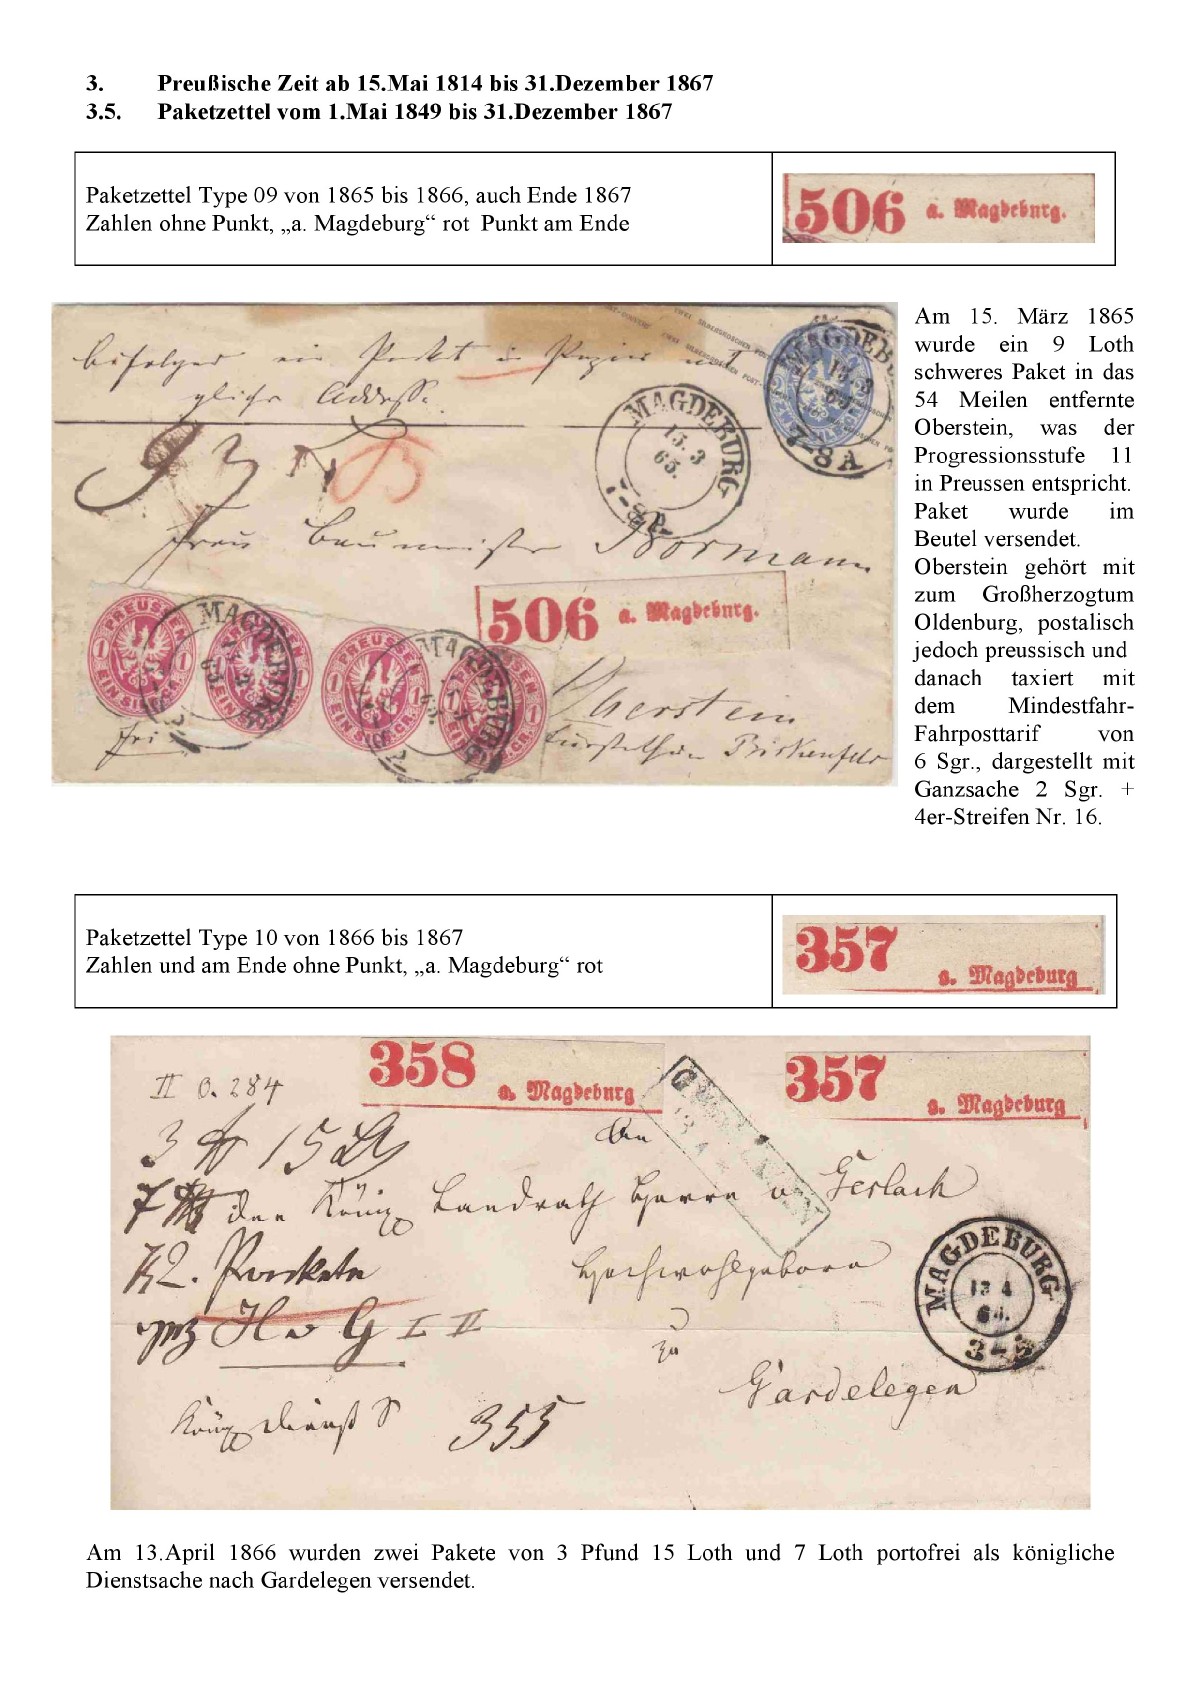 3. Preußische Zeit ab 15.Mai 1814 bis 31.Dezember 1867
3.5. Paketzettel vom 1.Mai 1849 bis 31.Dezember 1867
Paketzettel Type 09 von 1865 bis 1866, auch Ende 1867
Zahlen ohne Punkt, „a. Magdeburg“ rot Punkt am Ende
506 a. Magdeburg.
Am 15. März 1865
wurde ein 9 Loth
schweres Paket in das
54 Meilen entfernte
Oberstein, was der
Progressionsstufe 11
in Preussen entspricht.
Paket wurde im
Beutel versendet.
Oberstein gehört mit
zum Großherzogtum
Oldenburg, postalisch
jedoch preussisch und
danach taxiert mit
dem Mindestfahr-
Fahrposttarif von
6 Sgr., dargestellt mit
Ganzsache 2 Sgr. +
4er-Streifen Nr. 16.
ein Packet in Papier mit
Addresse.
MAGDEBURG
15.3
65.
7-8 A
MAGDEBURG
15.3
65.
Frau Baumeister Bormann
506 a. Magdeburg.
PREUSSEN
1 1
EIN SILB.GR.
MAGDEBURG
Oberstein
Fürstenthum Birkenfeld
frei
Paketzettel Type 10 von 1866 bis 1867
Zahlen und am Ende ohne Punkt, „a. Magdeburg“ rot
357
a. Magdeburg
358
a. Magdeburg
357
a. Magdeburg
II 0. 284
3 15
An
den König Landrath Herrn v Gerlach
Hochwohlgeboren
2. Packete
H v G I II
zu
Gardelegen
MAGDEBURG
13 4
355
Am 13.April 1866 wurden zwei Pakete von 3 Pfund 15 Loth und 7 Loth portofrei als königliche
Dienstsache nach Gardelegen versendet.